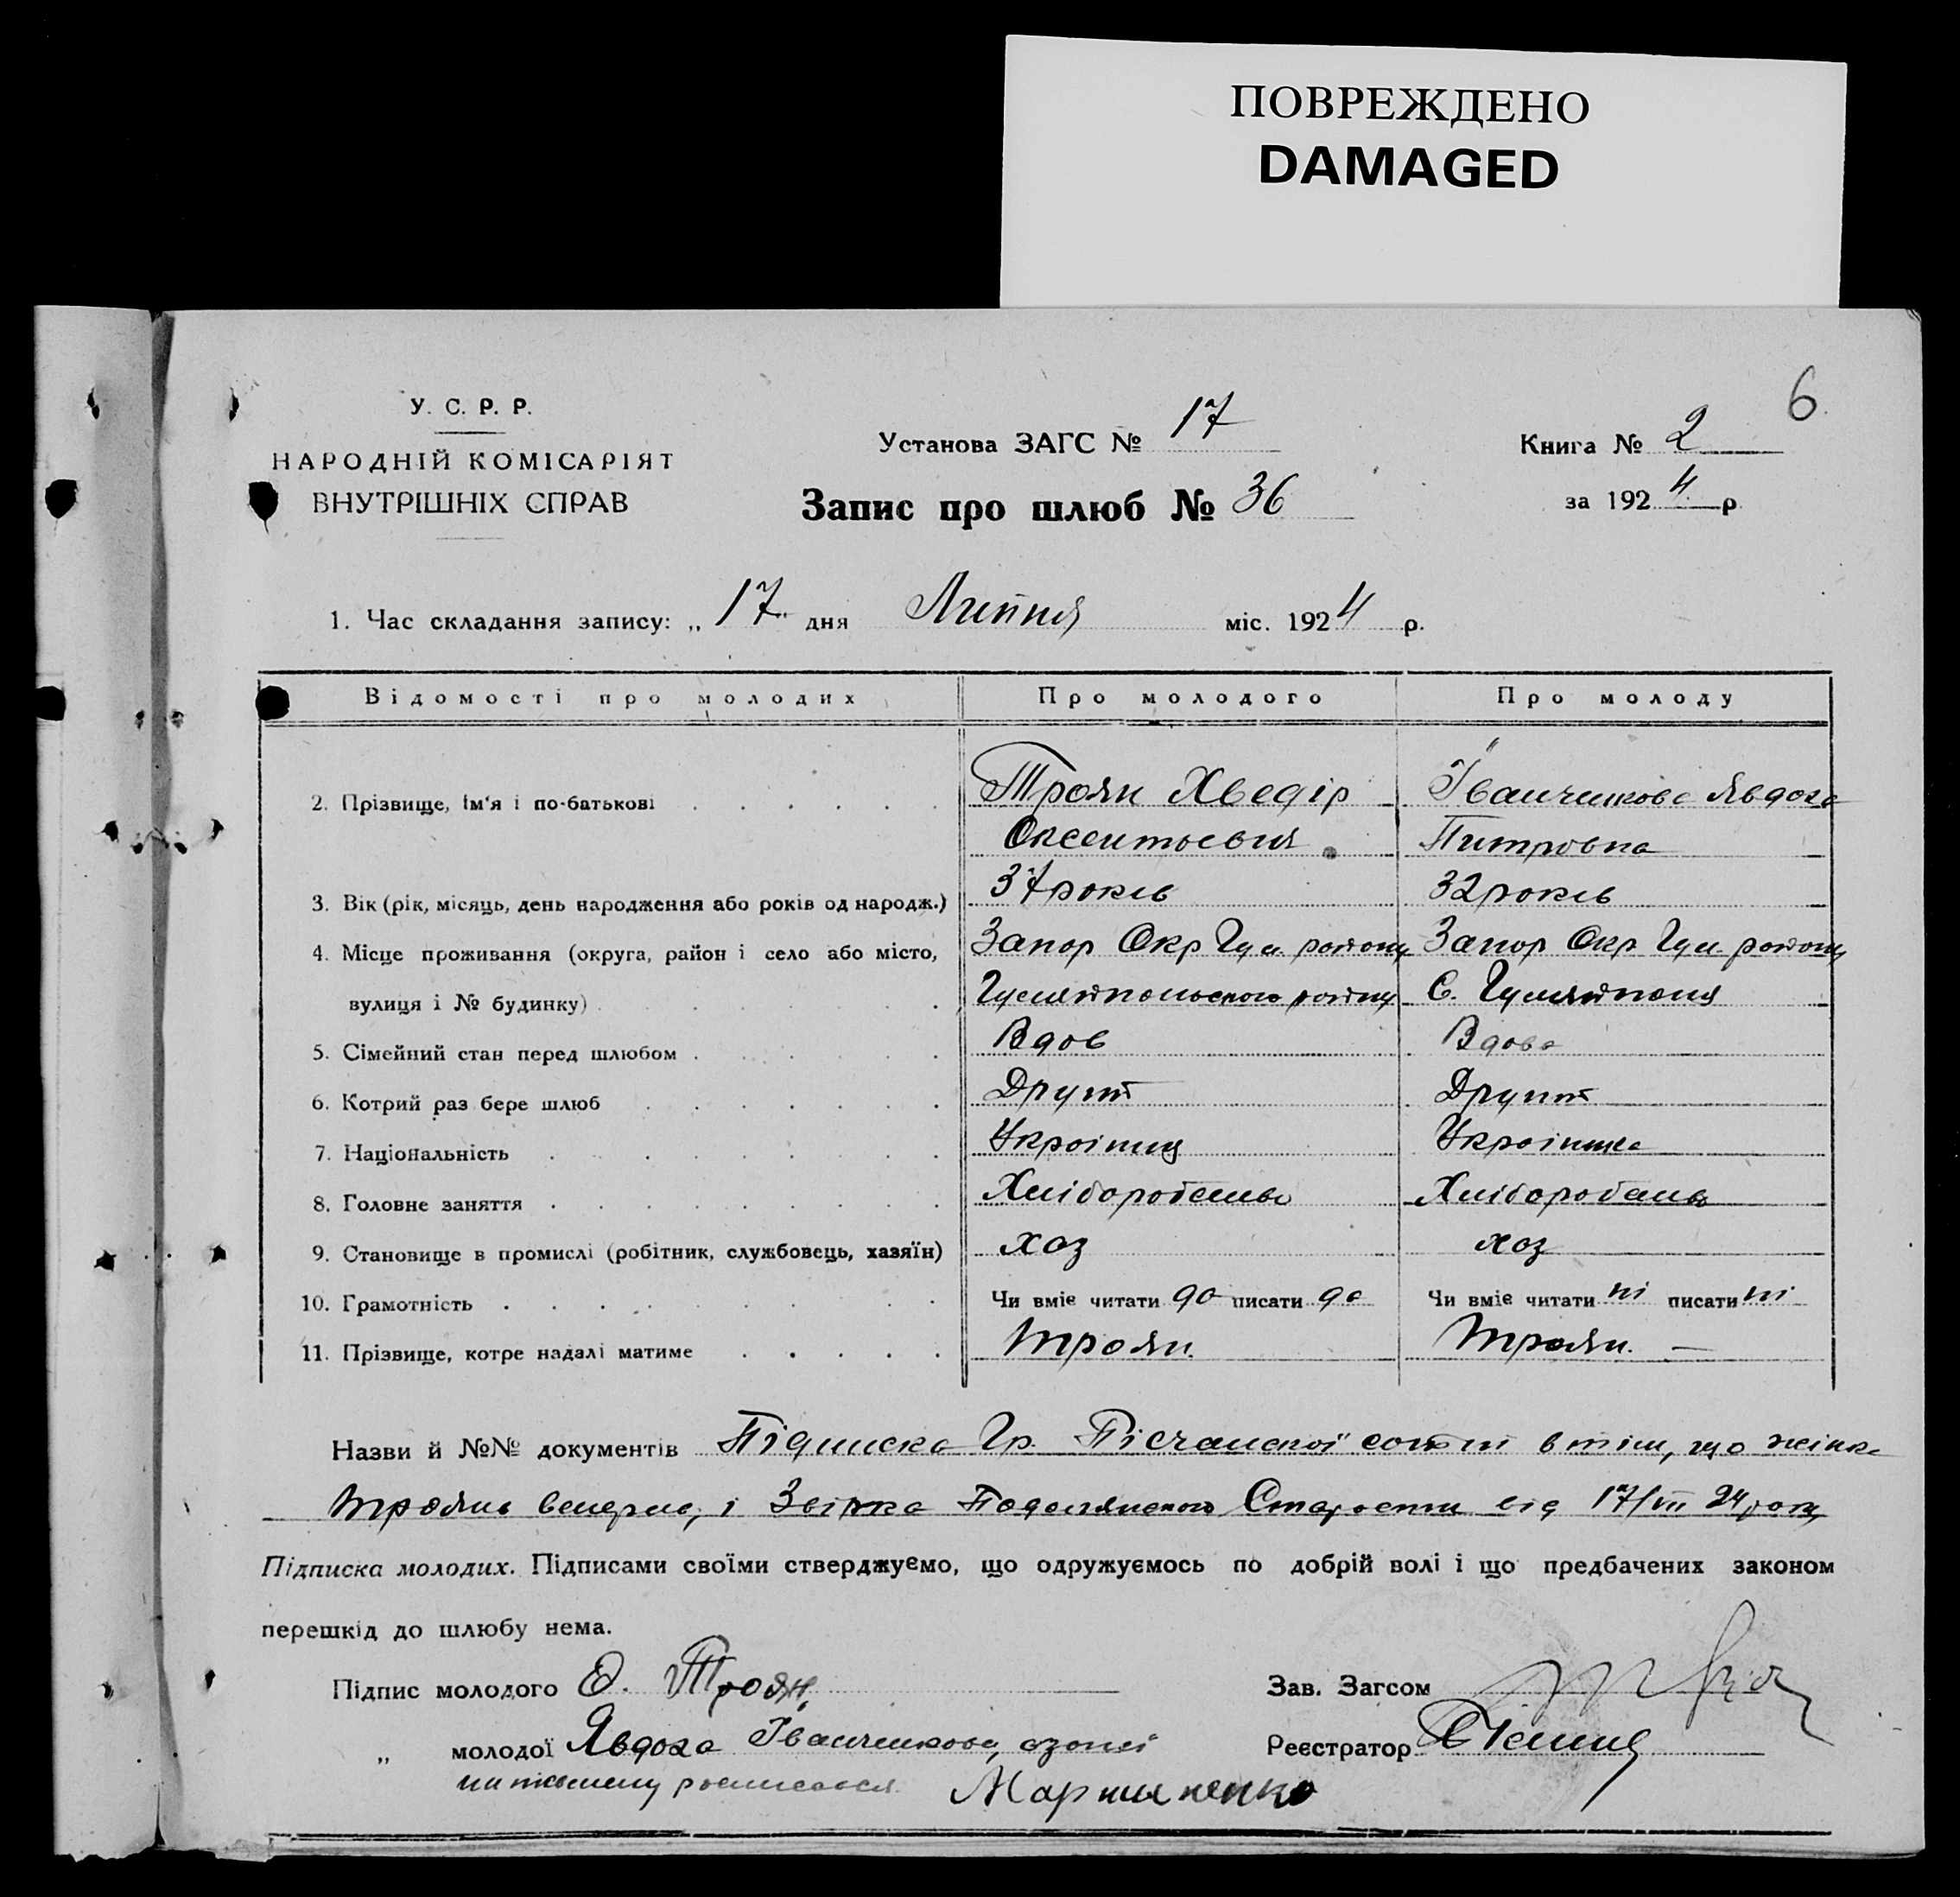 ПОВРЕЖДЕНО
DAMAGED
6
У. С. Р. Р.
НАРОДНІЙ КОМІСАРІЯТ
ВНУТРІШНІХ СПРАВ
Установа ЗАГС № 17
Книга № 2
Запис про шлюб № 36
за 1924 р
1. Час складання запису: „ 17 " дня Липня міс. 1924 р.
Відомості про молодих Про молодого Про молоду
2. Прізвище, ім'я і по-батькові Троян Хведір Іванченкова Явдоха
Оксентьевич Питровна
3. Вік (рік, місяць, день народження або років од народж.) 37 років 32 років
4. Місце проживання (округа, район і село або місто, Запор Окр Гул. району Запор Окр Гул. району
вулиця і № будинку) Гуляйпольского району С. Гуляйполя
5. Сімейний стан перед шлюбом Вдов Вдова
6. Котрий раз бере шлюб Другий Другий
7. Національність Украінец Украінка
8. Головне заняття Хліборобство Хліборобство
9. Становище в промислі (робітник, службовець, хазяїн) хоз хоз
10. Грамотність Чи вміє читати да писати да Чи вміє читати ні писати ні
11. Прізвище, котре надалі матиме Троян. Троян. —
Назви й №№ документів Підписка Гр. Пісчаної сотні в тім, що жінка
Трояна вмерла, і Старости від 17/VII 24 року
Підписка молодих. Підписами своїми стверджуємо, що одружуємось по добрій волі і що предбачених законом
перешкід до шлюбу нема.
Підпис молодого Ѳ. Троян,
Зав. Загсом
„ молодої Явдоха Іванченкова, а за неї
Реєстратор
неписьмену росписався Мартиненко